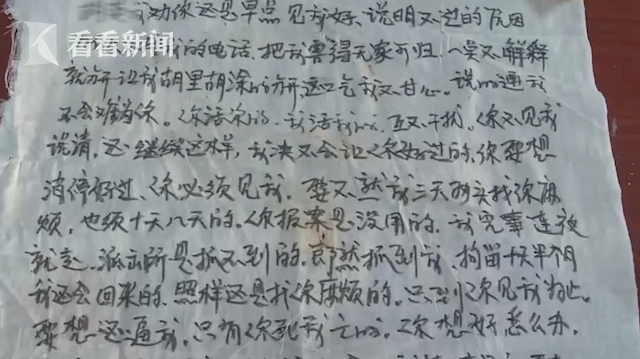 我劝你还是早点见我好、说明不过的原因
看看新闻
的电话、把我害得无家可归、一点不解释
就分开让我胡里胡涂的分开这口气我不甘心。说的通我
不会难为你。你活你的、我活我的、互不干扰。你不见我
说清、还继续这样、我决不会让你好过的、你要想
消停好过、你必须见我、要不然我三天两头找你麻
烦、也须十天八天的、你报案是没用的、我完事连夜
就走、派出所是抓不到的、即然抓到我、拘留十天半个月
我还会回来的、照样还是找你麻烦的、只到你见我为止。
要想这逼我、只有你死我亡的、你想好怎么办、